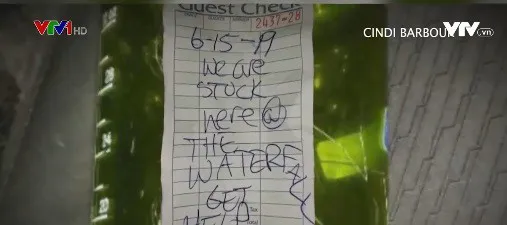 VTV1 HD
CINDI BARBOU
VTV.vn
Guest Check
2437-20
6-15-19
we are
STUCK
here @
THE
WATERF
GET
HELP